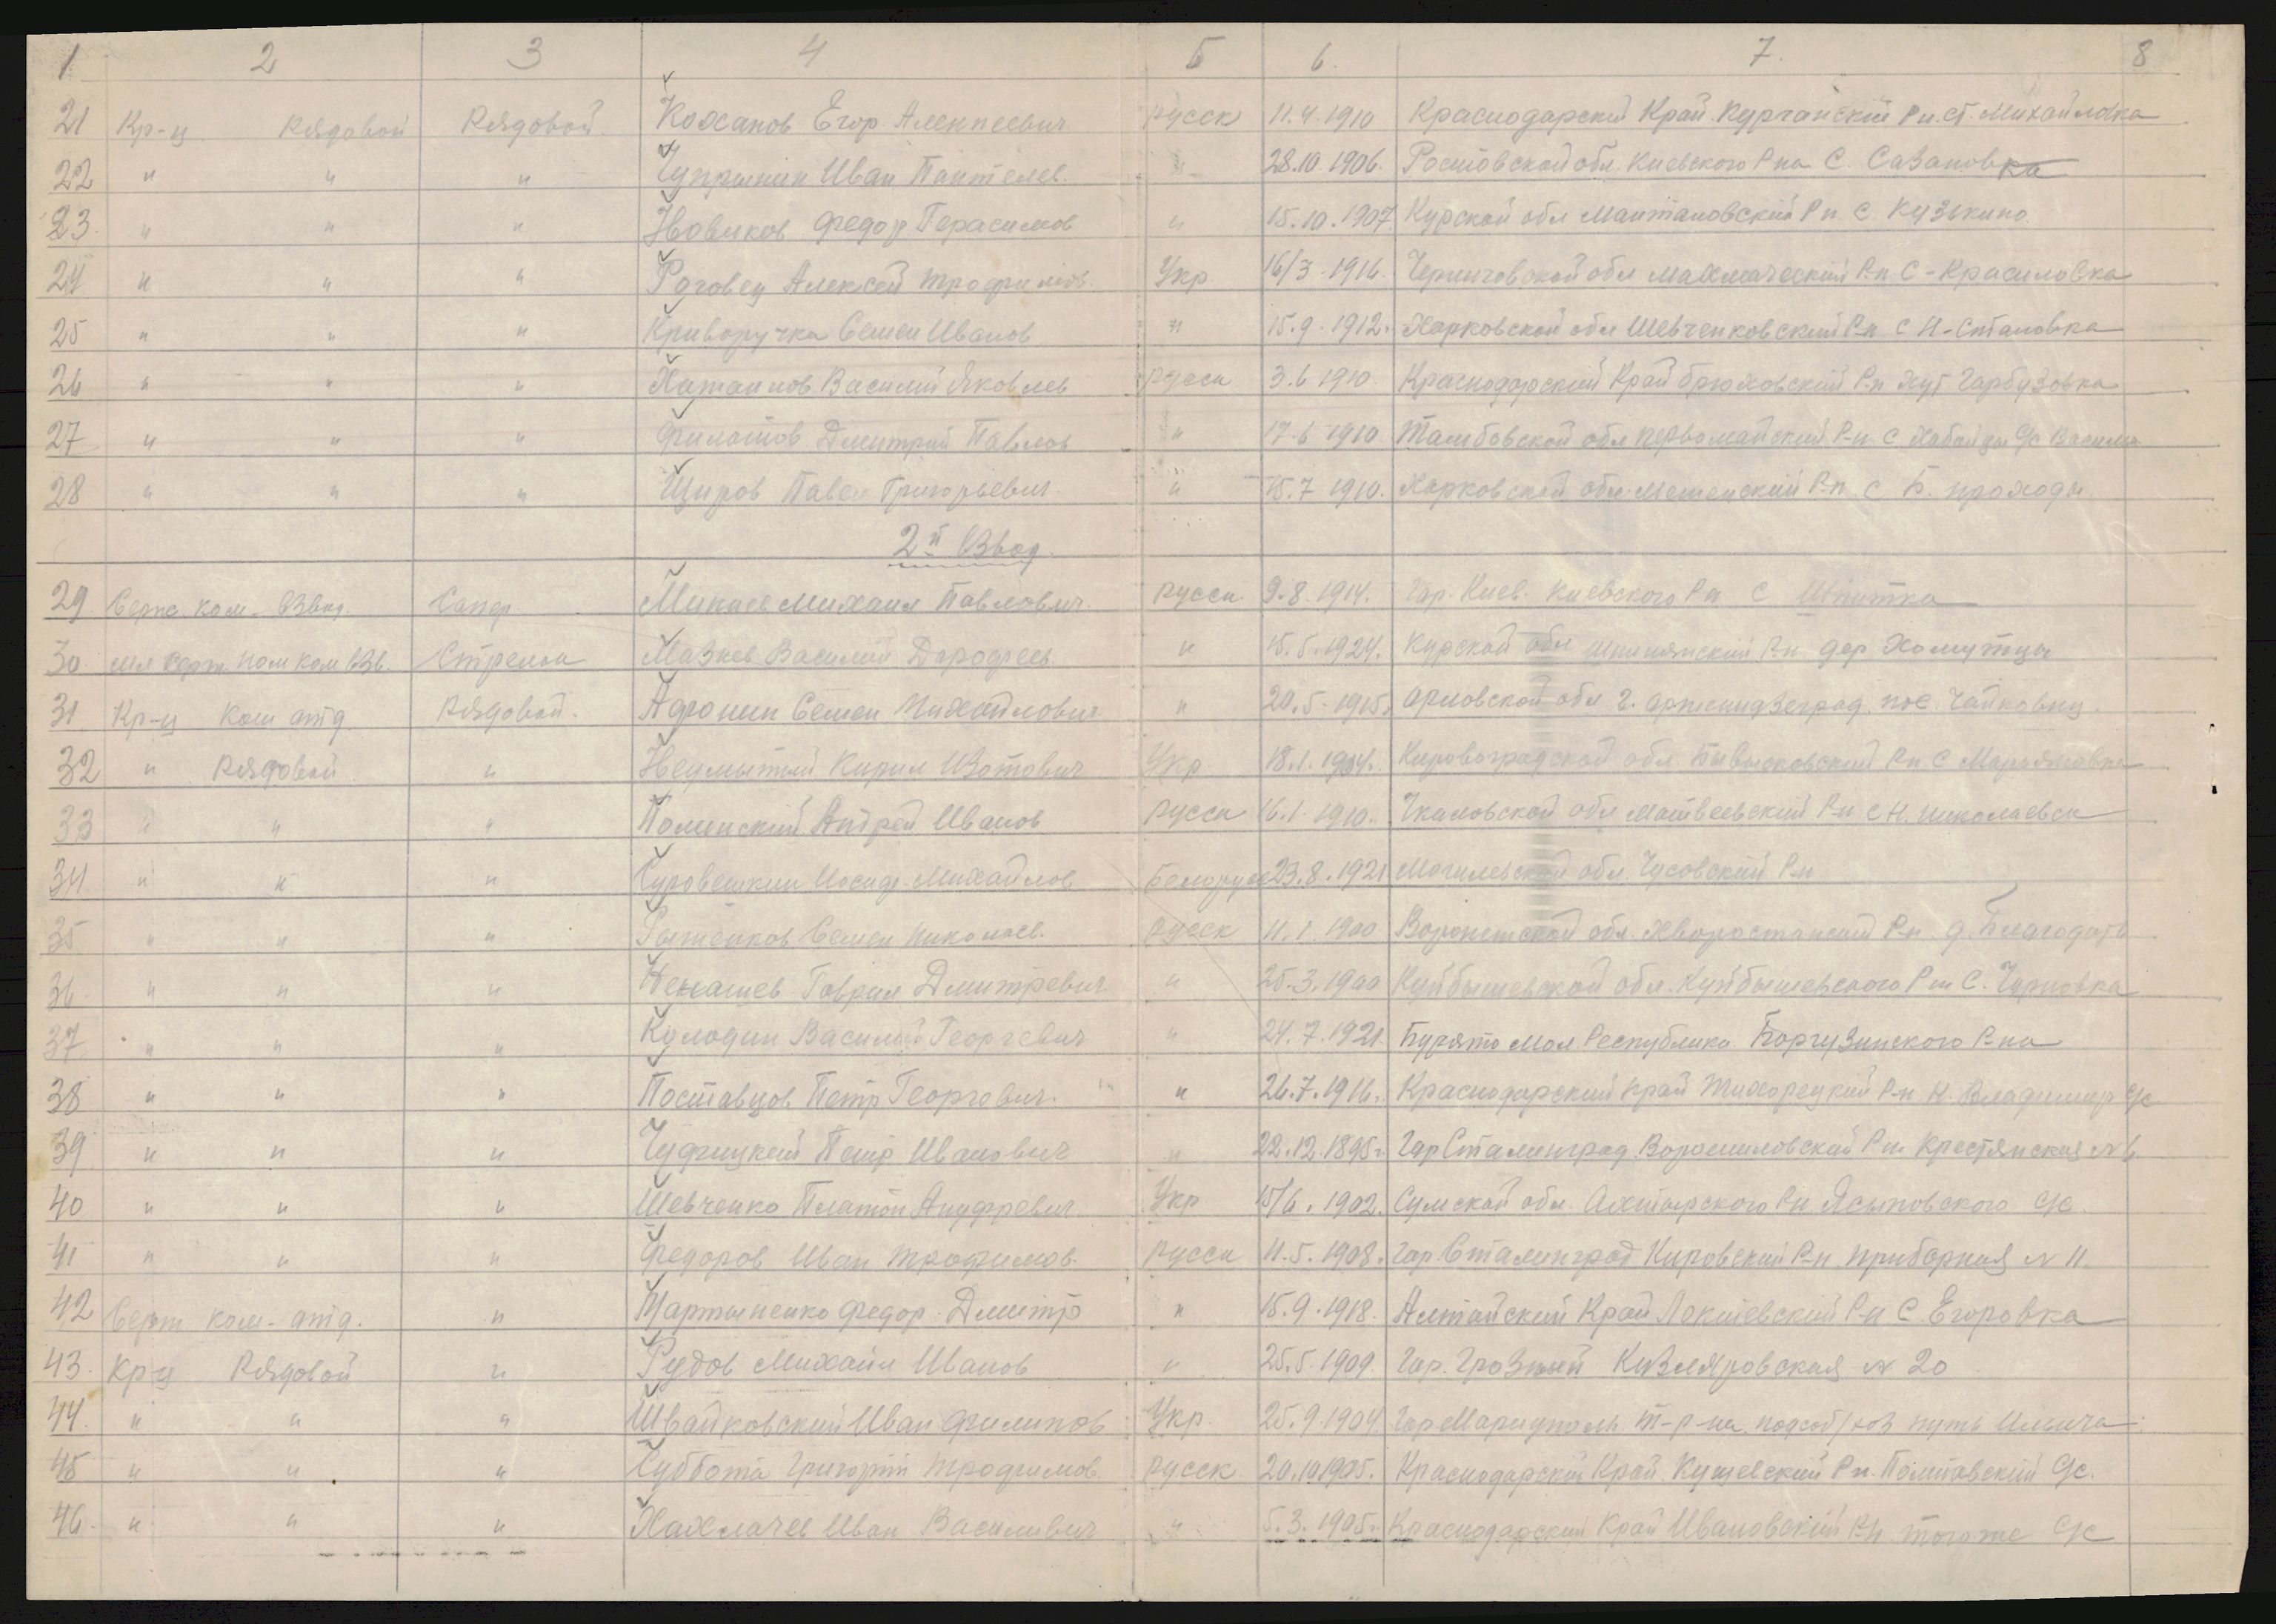 1 2 3 4 5 6. 7. 8
21 Кр-ц Рядовой Рядовой. Кожанов Егор Алекпеевич русск 11.4.1910 Краснодарский Край Курганский Рн. ст. Михайловка
22 " " " Чупрынин Иван Пантелев. " 28.10.1906. Ростовской обл. Киевского Рна С. Сазановка
23. " " " Новиков Федор Герасимов " 15.10.1907 Курской обл Мантуровский Рн. С. Кузькино.
24 " " " Роговец Алексей Трофимов. Укр 16/3.1916. Черниговской обл Рн С-Красиловка
25 " " " Криворучка Семен Иванов " 15.9.1912. Харковской обл Шевченковский Р-н С Н-Становка
26 " " " Василий Яковлев русск 3.6 1910 Краснодарский Край брюховский Р-н хут Гарбузовка
27 " " " Филатов Дмитрий Павлов " 17.6 1910 Тамбовской обл первомайский Р-н С с/с
28 " " " Щиров Павел Григорьевич. " 15.7 1910. Харковской обл. Р-н С Б. проходы
2й Взвод.
29 Серж ком. Взвод. Сапер Минаев Михаил Павлович. русск. 9.8.1914. Гор. Киев. Киевского Рн С
30 мл серж пом ком Взв. Стрелок Мазнев Василий Дорофеев. " 15.5.1924. Курской обл Р-н дер Хомутцы
31 Кр-ц ком отд Рядовой. Афонин Семен Михайлович " 20.5.1915. Орловской обл г. пос.
32 " Рядовой " Неумытый Кирил Изотович Укр. 18.1.1904. Кировоградской обл. Рн С Марьяновка
33 " " " Полинский Андрей Иванов русск 16.1.1910. Чкаловской обл Матвеевский Р-н С Н. николаевск
34 " " " Иосиф Михайлов Белорусс 23.8.1921 Могилевской обл. Чусовский Р-н
35 " " " Семен Николаев. русск 11.1.1900 Воронежской обл. Хворостанский Р-н д. Благодать
36. " " " Ненашев Гаврил Дмитревич " 25.3.1900 Куйбышевской обл. Куйбышевского Рн С. Черновка
37 " " " Колодин Василий Георгевич " 24.7.1921. Бурято Мол Республика Боргузинского Р-на
38 " " " Поставцов Петр Георгевич. " 26.7.1916. Краснодарский край Тихорецкий Р-н Н. Владимир с/с
39 " " " Петр Иванович " 22.12.1895г. Гор Сталинград. Ворошиловский Рн Крестянская № 6
40 " " " Шевченко Платон Ануфревич. Укр 15/6.1902. Сумской обл. Ахтырского Рн Ясыновского с/с.
41 " " " Федоров Иван Трофимов. русск 11.5.1908. Гор. Сталинград Кировский Р-н приборная № 11.
42 Серж ком-отд. " Мартыненко Федор. Дмитр " 15.9.1918. Алтайский Край Локтевский Р-н С Егоровка
43. Кр-ц Рядовой " Рудов Михаил Иванов " 25.5.1909. Гор. Грозный Кизляровская № 20
44. " " " Швайковский Иван Филипов Укр. 25.9.1904 Гор Мариуполь подсоб/хоз путь Ильича.
45 " " " Суббота Григорий Трофимов русск 20.10.1905. Краснодарский Край Кущевский Рн. Полтавский с/с.
46. " " " Хахлачев Иван Василивич " 5.3.1905. Краснодарский Край Ивановский Р-н тогоже с/с